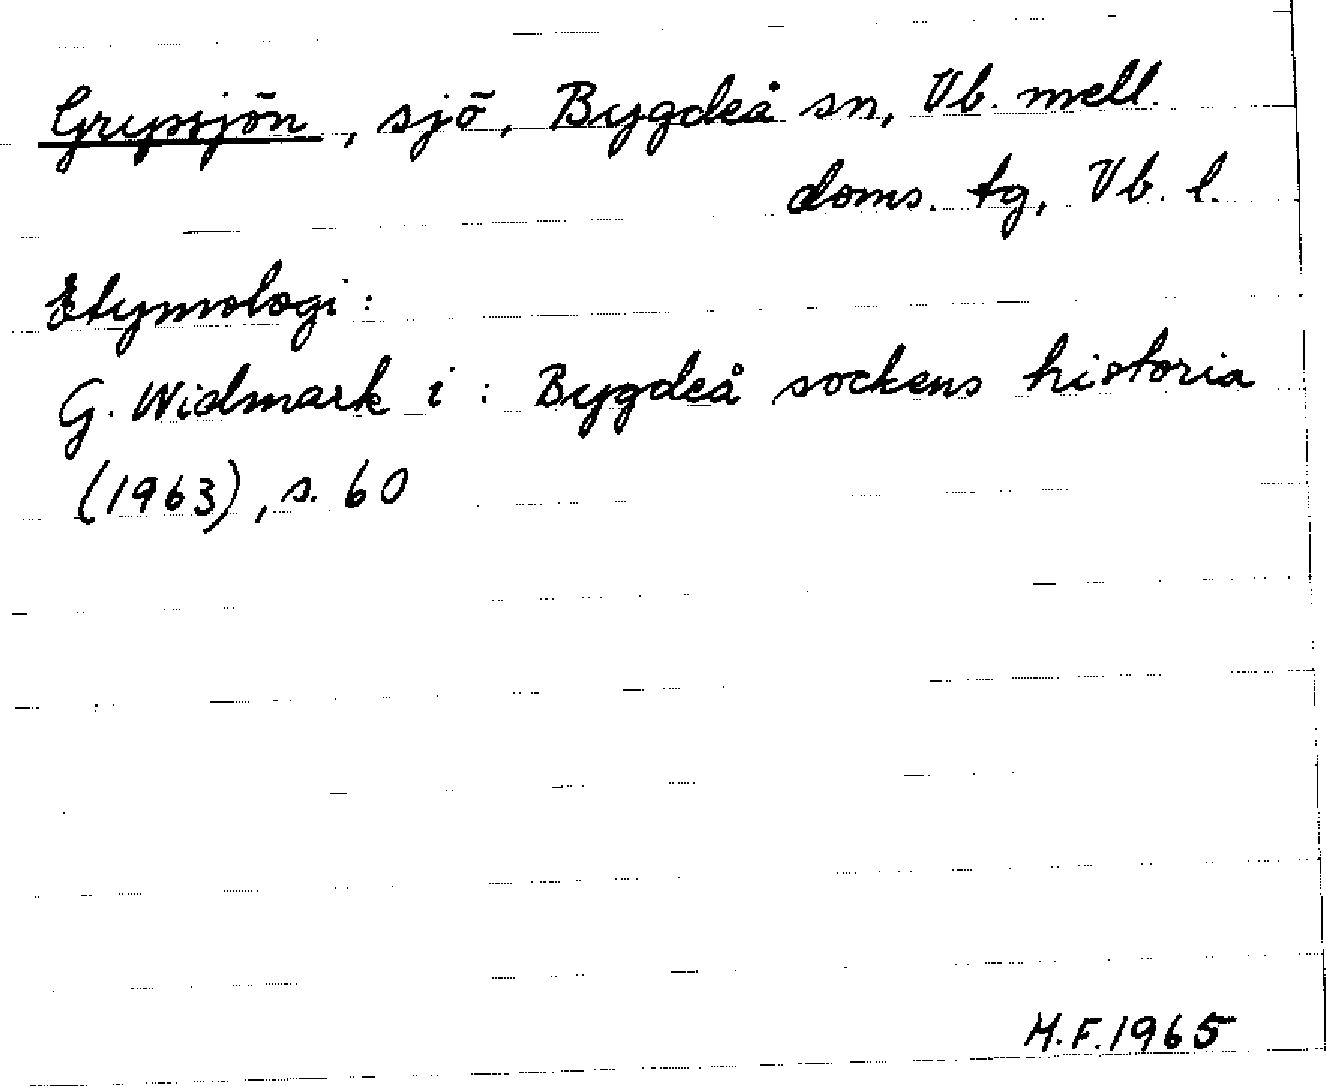 Grypsjön, sjö, Bygdeå sn, Vb. mell.
doms. tg, Vb. l.
Etymologi:
G. Widmark i: Bygdeå sockens historia
(1963), s. 60
H.F. 1965